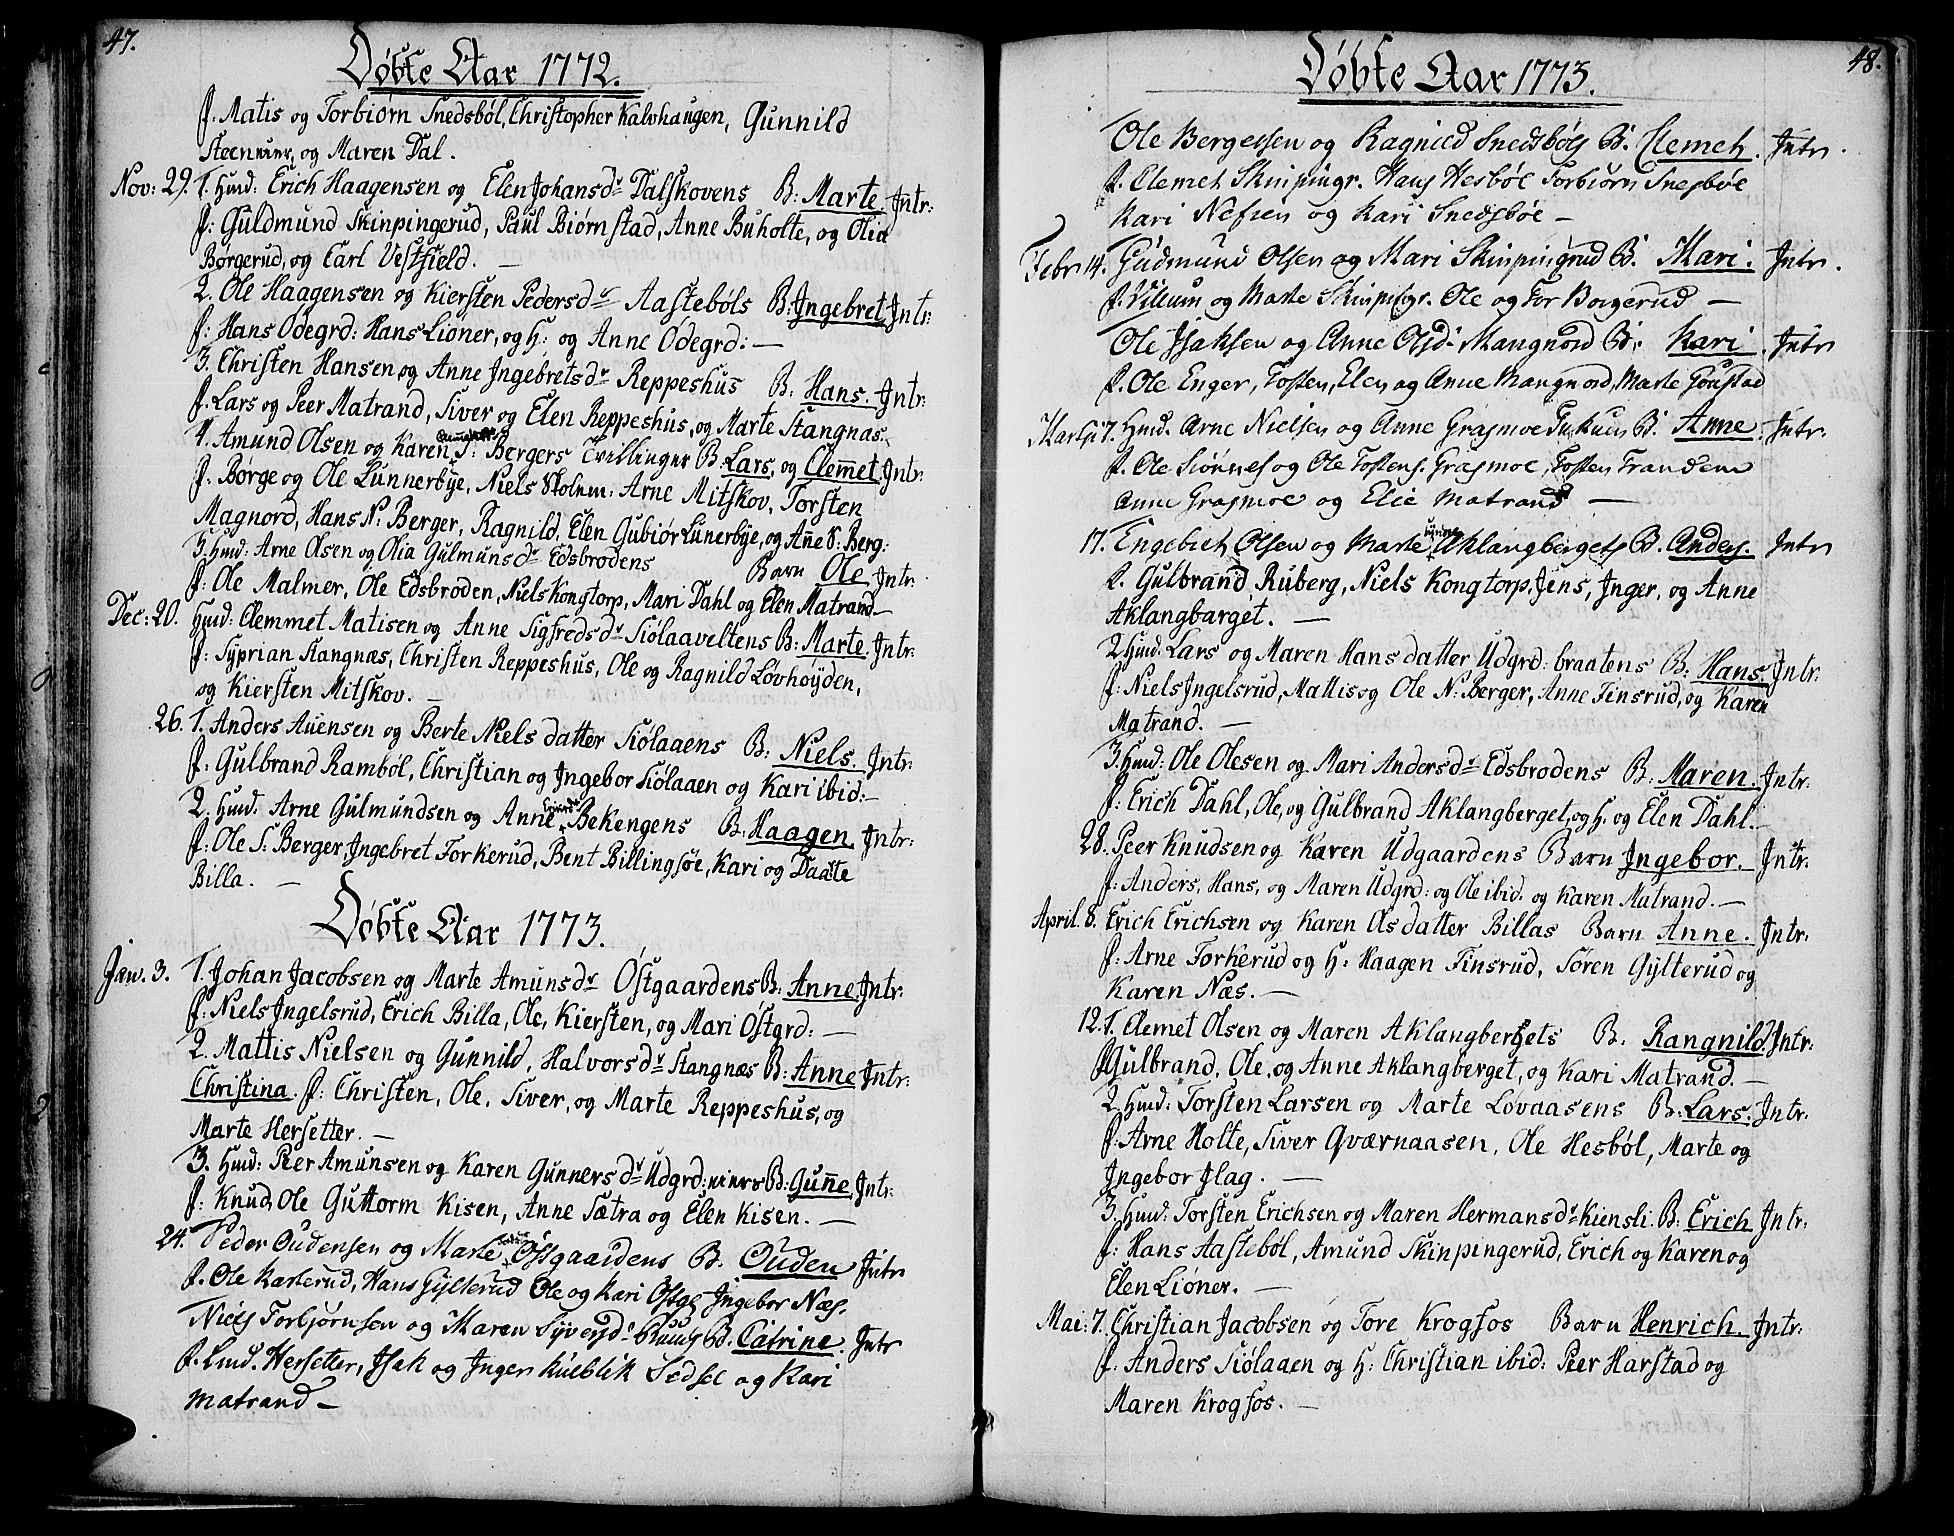 47.
Døbte Aar 1772.
F: Matis og Torbiørn Snedsbøl, Christopher Kalvhaugen, Gunnild
Steen og Maren Dal.
Nov: 29. 1. Hmd: Erich Haagensen og Elen Johansdr Dalskovens B: Marte. Intr:
F: Guldmund Skinpingerud, Paul Biørnstad, Anne Buholte, og Olia
Børgerud, og Carl Vestfield. —
2. Ole Haagensen og Kiersten Pedersdr Aastebøls B: Ingebret Intr:
F: Hans Ödegrd: Hans Lioner, og H: og Anne Ödegrd: —
3. Christen Hansen og Anne Ingebretsdr Reppeshus B: Hans. Intr:
F. Lars og Peer Matrand, Siver og Elen Reppeshus, og Marte Stangnæs.
4. Amund Olsen og Karen S: Bergers Tvillinger B: Lars, og Clemmet. Intr:
F: Borge og Ole Lunnerbye, Niels Arne Mitskov, Torsten
Magnord, Hans N: Berger, Ragnild, Elen Gubiør Lunerbye, og Anne S: Berg:
5. Hmd: Arne Olsen og Olia Gulmunsdr Edsbrodens Barn Ole Intr.
F: Ole Malmer, Ole Edsbroden, Niels Kongtorp, Mari Dahl og Elen Matrand—
Dec: 20. Hmd: Clemmet Matisen og Anne Sigfredsdr Siölaaveltens B: Marte. Intr:
F: Syprian Stangnæs, Christen Reppeshus, Ole og Ragnild Løvhøyden,
og Kiersten Mitskov. —
26. 1. Anders Auensen og Berte Nielsdatter Siölaaens B: Niels. Intr:
F: Gulbrand Rambøl, Christian og Ingebor Siölaaen og Kari ibid: —
2. Hmd. Arne Gulmundsen og Anne Bekengens B: Haagen. Intr:
F: Ole S: Berger, Ingebret Torkerud, Bent Billingsøe, Kari og Daate
Billa. —
Døbte Aar 1773.
Jan. 3. 1. Johan Jacobsen og Marte Amunsdr Östgaardens B: Anne. Intr:
F: Niels Ingelsrud, Erich Billa, Ole, Kiersten, og Mari Östgrd: —
2. Mattis Nielsen og Gunnild, Halvorsdr Stangnæs B: Anne Intr:
Christina. F: Christen, Ole, Siver, og Marte Reppeshus, og
Marte Hersetter. —
3. Hmd: Peer Amunsen og Karen Gunnersdr Udgrd: B: Gunne. Intr:
F: Knud, Ole Guttorm Kisen, Anne Sætra og Elen Kisen. —
24. Peder Oudensen og Marte Östgaardens B. Ouden Intr
F. Ole Karterud, Hans Gylterud Ole og Kari Östg. Ingebor Næs.
Niels Torbjørnsen og Maren Syversd: Ruuds B. Catrine. Intr
F. Hersetter, Isak og Inger Kulblik Sidsel og Kari
Matrand —
48.
Døbte Aar 1773.
Ole Bergersen og Ragnild Snedsbøls B. Clemet. Intr.
F. Clemet Skinpingr. Hans Hesbøl Torbiørn Snesbøl
Kari Nefsen og Kari Snedsbøe —
Febr 14. Gudmund Olsen og Mari Skinpingrud B. Mari. Intr.
F. Villum og Marte Skinpigr. Ole og Tor Borgerud —
Ole Isaksen og Anne Olsd. Mangnord B. Kari. Intr
F. Ole Enger, Tosten, Elen og Anne Mangnord, Marte
Martji 7. Hmd. Arne Nielsen og Anne Grasmoe B. Anne. Intr.
F. Ole Siønnes og Ole Tostens. Grasmoe, Tosten Trandem
Anne Grasmoe og Elie Matrand —
17. Engebret Olsen og Marte Aklangbergets B. Anders. Intr
F. Gulbrand, Ruberg, Niels Kongtorp, Jens, Inger, og Anne
Aklangbarget. —
2 Hmd. Lars og Maren Hansdatter Udgrd: braatens B: Hans. Intr:
F: Niels Ingelsrud, Mattis og Ole N: Berger, Anne Finsrud, og Karen
Matrand. —
3. Hmd: Ole Olesen og Mari Andersdr Edsbrodens B: Maren. Intr:
F: Erich Dahl, Ole, og Gulbrand Aklangberget, og H. og Elen Dahl. —
28. Peer Knudsen og Karen Udgaardens Barn Ingebor. Intr:
F: Anders, Hans, og Maren Udgrd: og Ole ibid. og Karen Matrand. —
April. 8. Erich Erichsen og Karen Asdatter Billas Barn Anne. Intr:
F: Arne Torkerud og H: Haagen Finsrud, Søren Gylterud og
Karen Næs. —
12. 1. Clemet Olsen og Maren Aklangbergets B. Rangnild. Intr:
F: Gulbrand, Ole, og Anne Aklangberget, og Kari Matrand. —
2. Hmd: Torsten Larsen og Marte Løvaasens B: Lars. Intr:
F: Arne Holte, Siver Qværnaasen, Ole Hesbøl, Marte og
Ingebor Flag. —
3. Hmd: Torsten Erichsen og Maren Hermansdr Kiensli. B: Erich Intr:
F: Hans Aastebøl, Amund Skinpingerud, Erich og Karen og
Elen Liøner. —
Mai: 7. Christian Jacobsen og Tore Krogfos Barn Henrich. Intr:
F: Anders Siölaaen og H: Christian ibid: Peer Harstad og
Maren Krogfos. —